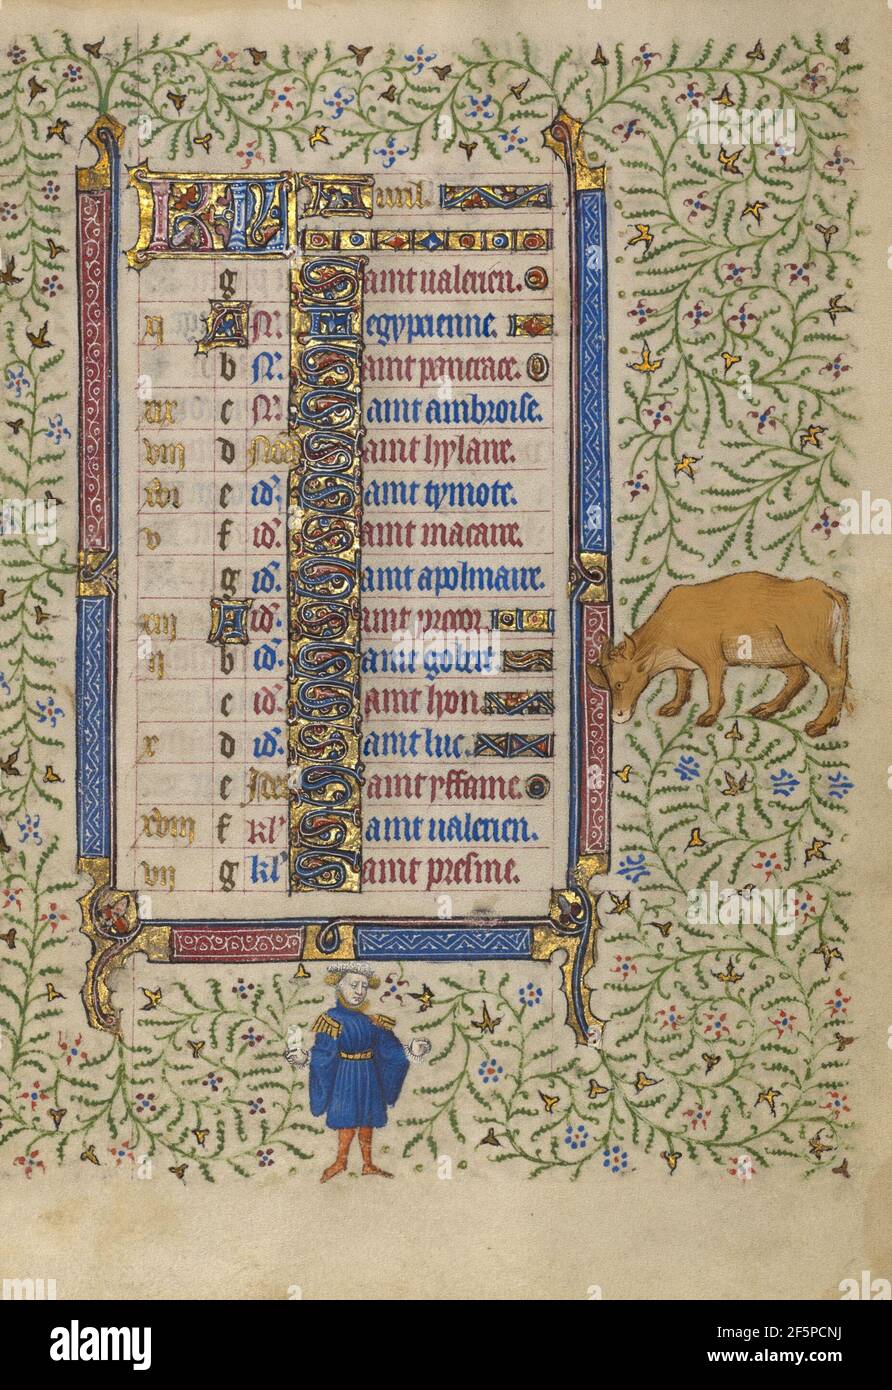 KL Auril.
g Saint ualerien.
xi A N̄. Legypcienne.
b N̄. Saint pancrace.
xix c N̄. Saint ambroise.
viii d Non Saint hylaire.
xvi e id'. Saint tymote.
v f id'. Saint macaire.
g id'. Saint apolinaire.
xiii A id'. Saint
ii b id'. Saint gobert.
c id'. Saint lyon.
x d id'. Saint luc.
e Idus Saint yffame.
xviii f kl' Saint ualerien.
vii g kl' Saint presme.
alamy
Image ID: 2F5PCNJ
www.alamy.com